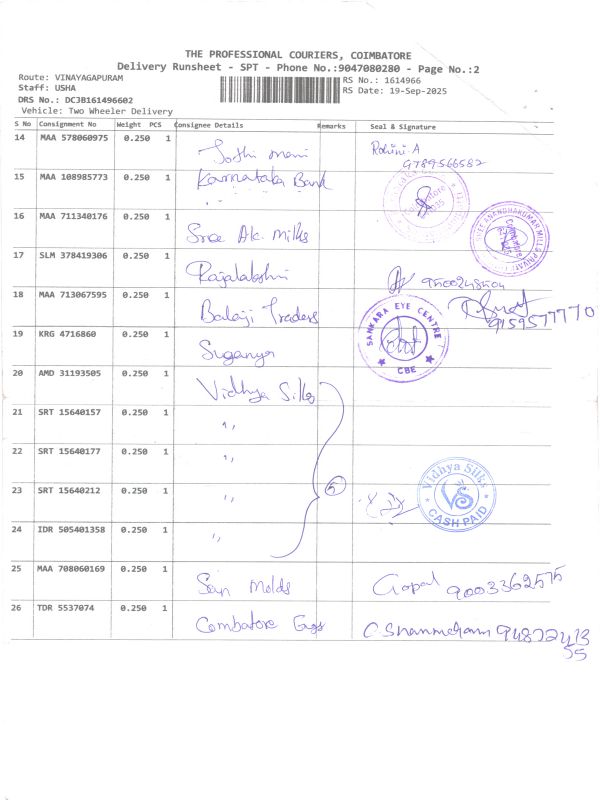 THE PROFESSIONAL COURIERS, COIMBATORE
Delivery Runsheet - SPT - Phone No.:9047080280 - Page No.:2
Route: VINAYAGAPURAM
Staff: USHA
DRS No.: DCJB161496602
Vehicle: Two Wheeler Delivery
RS No.: 1614966
RS Date: 19-Sep-2025
S No Consignment No Weight PCS Consignee Details Remarks Seal & Signature
14 MAA 578060975 0.250 1 Jothi mani Rohini A
9789566582
15 MAA 108985773 0.250 1 Karnataka Bank
16 MAA 711340176 0.250 1 Sree Ak. Mills
17 SLM 378419306 0.250 1 Rajalakshmi 9500248504
18 MAA 713067595 0.250 1 Balaji Traders
9159577770
19 KRG 4716860 0.250 1 Suganya
SANKARA EYE CENTRE
CBE
20 AMD 31193505 0.250 1 Vidhya Silks
21 SRT 15640157 0.250 1 "
22 SRT 15640177 0.250 1 "
23 SRT 15640212 0.250 1 " 5
Vidhya Silks
VS
CASH PAID
24 IDR 505401358 0.250 1 "
25 MAA 708060169 0.250 1 Molds Gopal 9003362575
26 TDR 5537074 0.250 1 Coimbatore Engs C. Shanmugam 94872413
55